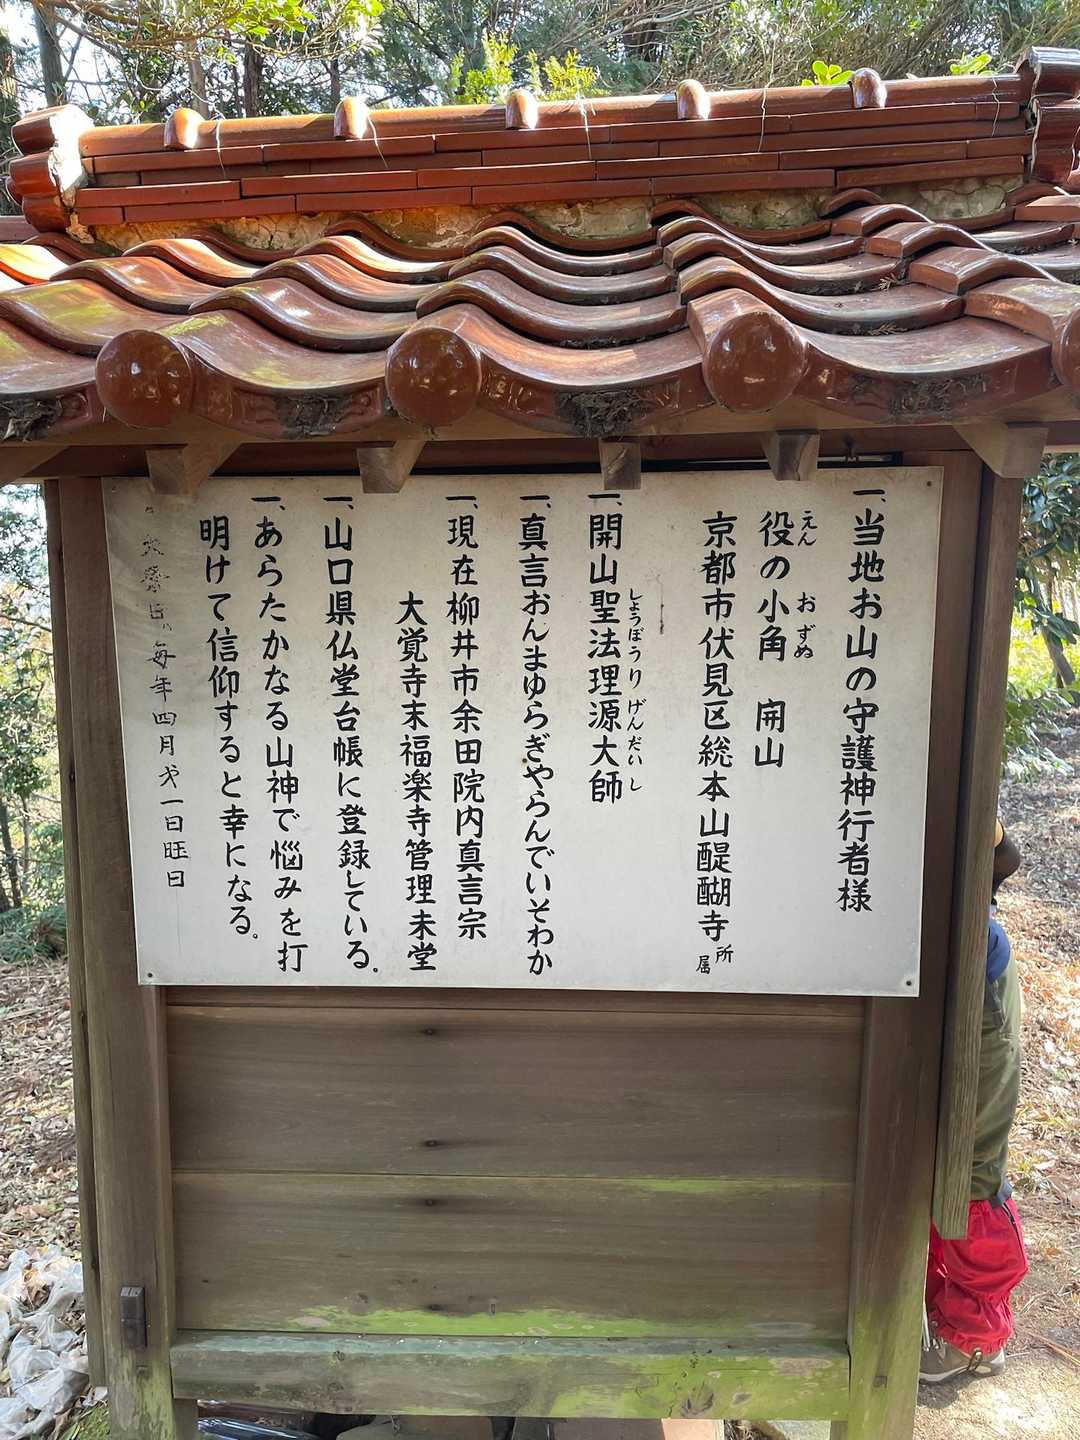 一、当地お山の守護神行者様
役の小角 開山
えん おずぬ
京都市伏見区総本山醍醐寺所属
一、開山聖法理源大師
しょうぼうりげんだいし
一、真言おんまゆらぎやらんでいそわか
一、現在柳井市余田院内真言宗
大覚寺末福楽寺管理未堂
一、山口県仏堂台帳に登録している。
一、あらたかなる山神で悩みを打
明けて信仰すると幸になる。
日、毎年四月弐一日旺日